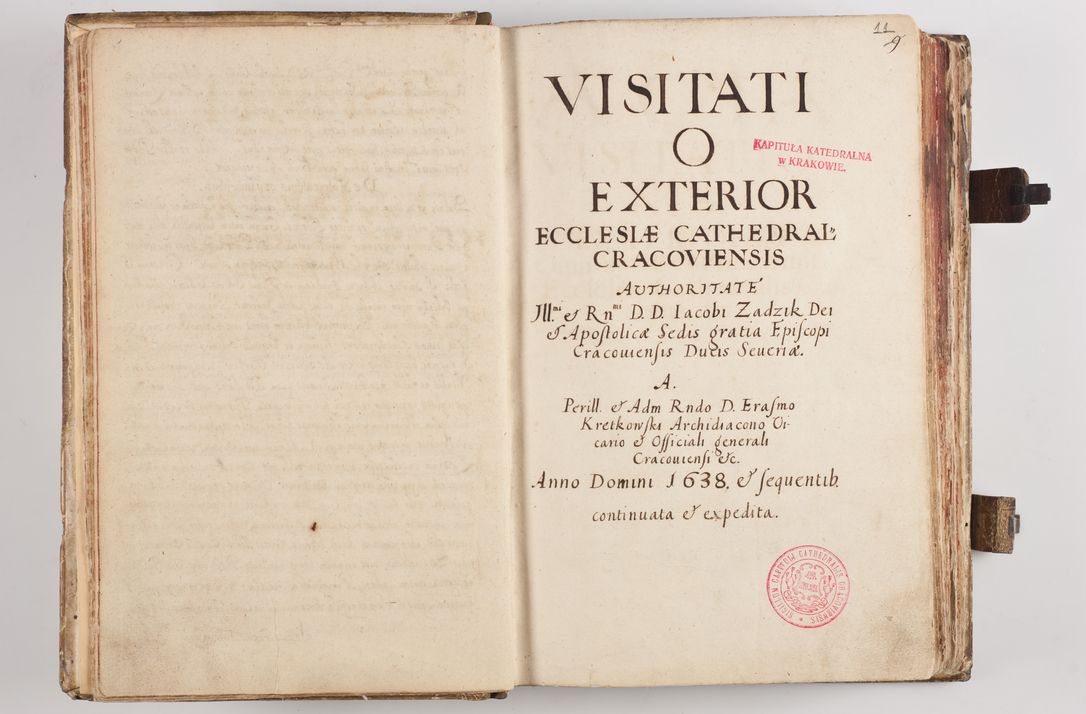 11
9
VISITATI
O
EXTERIOR
ECCLESIÆ CATHEDRAL
CRACOVIENSIS
AUTHORITATE
Ill.mi & Rn.mi D. D. Iacobi Zadzik Dei
& Apostolicæ Sedis gratia Episcopi
Cracouiensis Ducis Seueriæ.
A.
Perill. & Adm Rndo D. Erasmo
Kretkowski Archidiacono Vi-
cario & Officiali generali
Cracouiensi &c.
Anno Domini 1638, & sequentib.
continuata & expedita.
KAPITUŁA KATEDRALNA
w KRAKOWIE.
SIGILLUM CAPITULI CATHEDRALIS CRACOVIENSIS